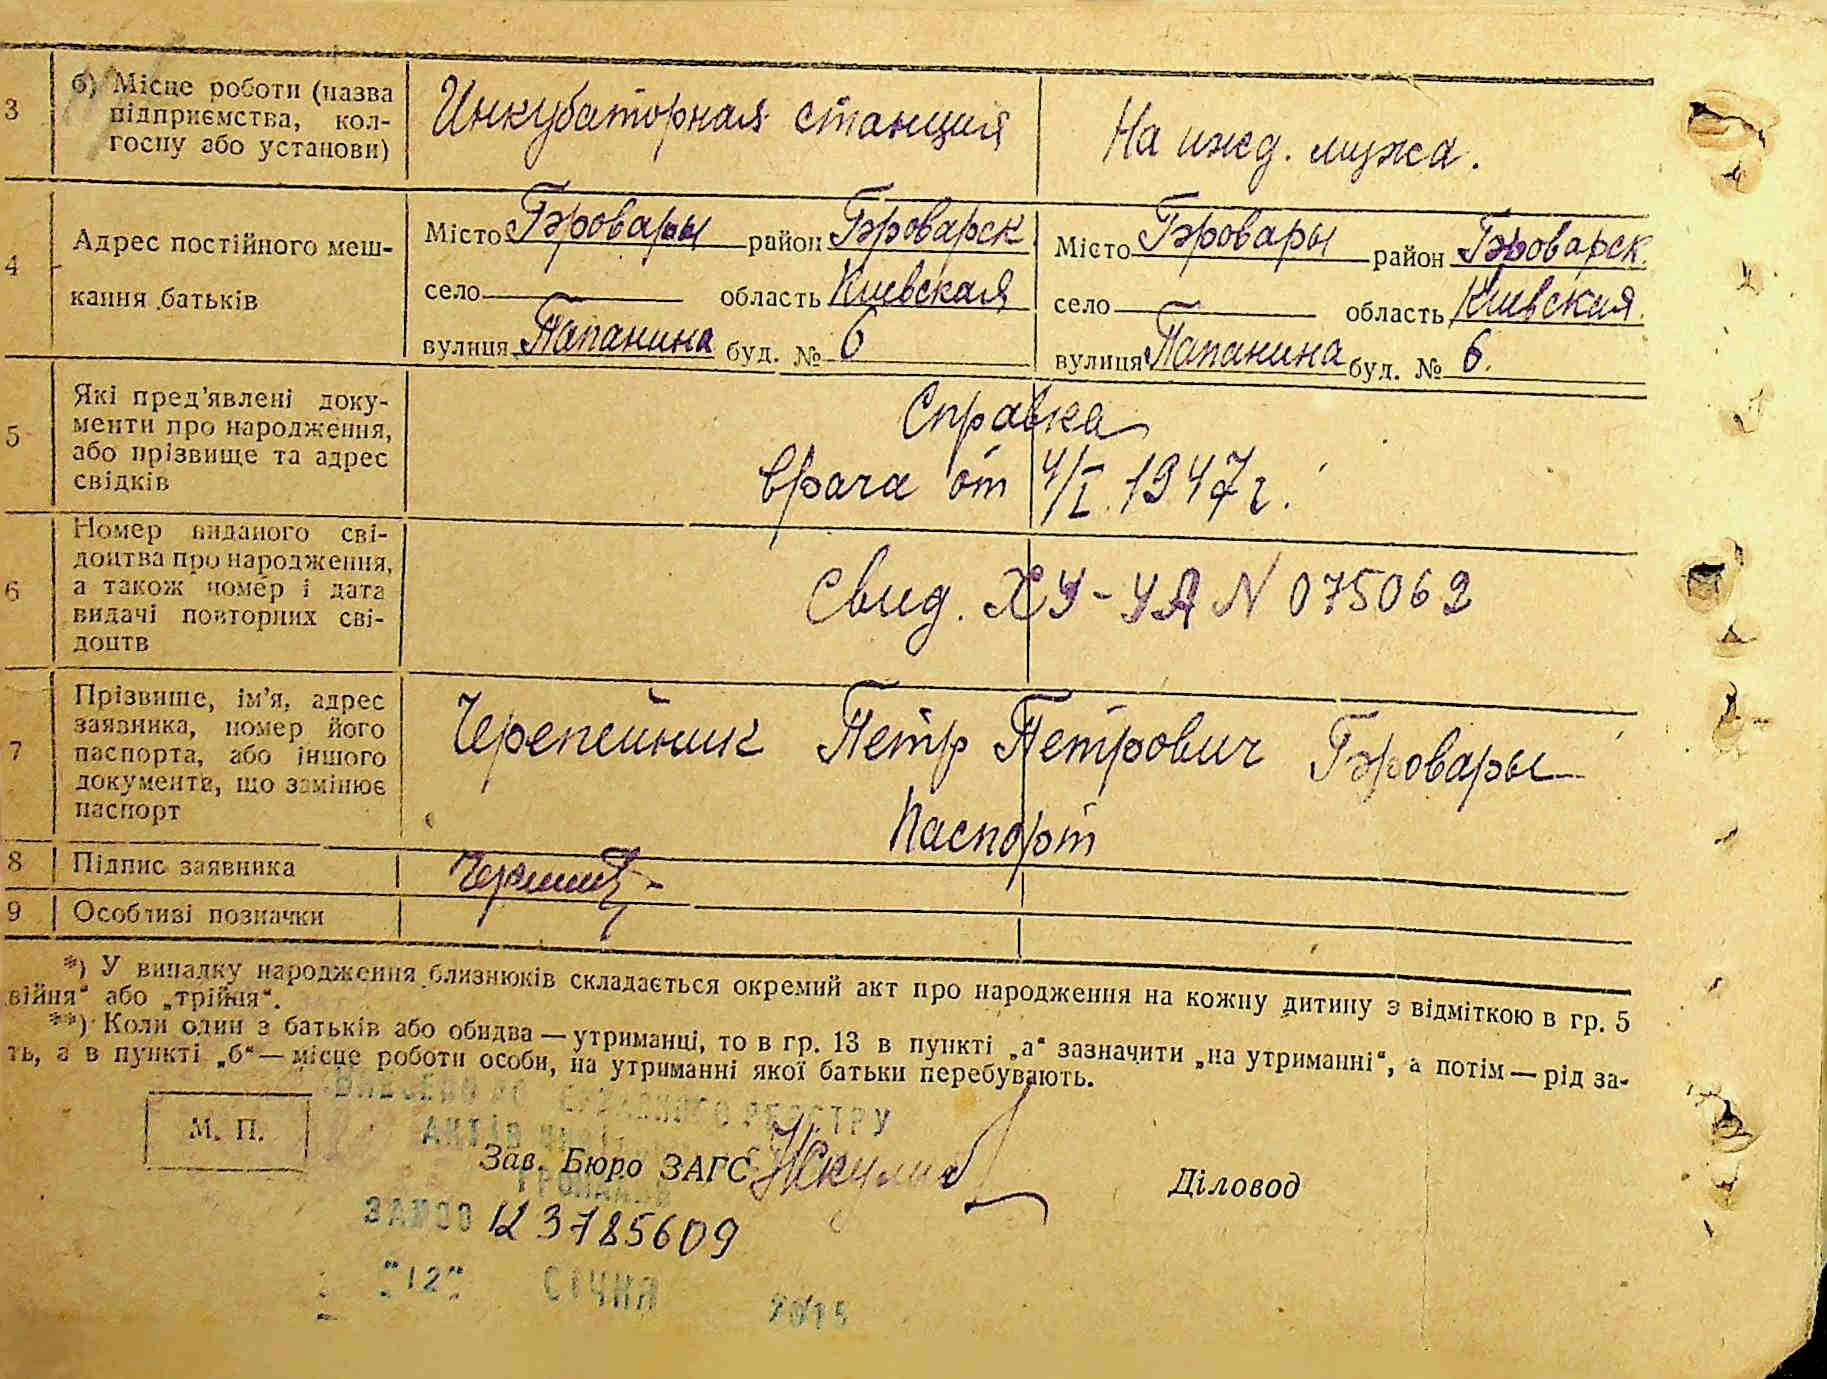 3 б) Місце роботи (назва
підприємства, кол-
госпу або установи)
Инкубаторная станция
На ижд. мужа.
4 Адрес постійного меш-
кання батьків
Місто Бровары район Броварск
село область Киевская
вулиця Папанина буд. № 6
Місто Бровары район Броварск.
село область Киевская.
вулиця Папанина буд. № 6.
5 Які пред'явлені доку-
менти про народження,
або прізвище та адрес
свідків
Справка
врача от 4/I. 1947 г.
6 Номер виданого сві-
доцтва про народження,
а також номер і дата
видачі повторних сві-
доцтв
Свид. ХУ-УЯ N 075062
7 Прізвище, ім'я, адрес
заявника, номер його
паспорта, або іншого
документа, що замінює
паспорт
Черепейник Петр Петрович Бровары
Паспорт
8 Підпис заявника
9 Особливі позначки
*) У випадку народження близнюків складається окремий акт про народження на кожну дитину з відміткою в гр. 5
війня" або „трійня".
**) Коли один з батьків або обидва — утриманці, то в гр. 13 в пункті „а" зазначити „на утриманні", а потім — рід за-
ть, а в пункті „б" — місце роботи особи, на утриманні якої батьки перебувають.
ВНЕСЕНО ДО ДЕРЖАВНОГО РЕЄСТРУ
АКТІВ ЦИВІЛЬНОГО
М. П.
Зав. Бюро ЗАГС
Діловод
ГРОМАДЯН
ЗА №00 123785609
"12" СІЧНЯ 2015